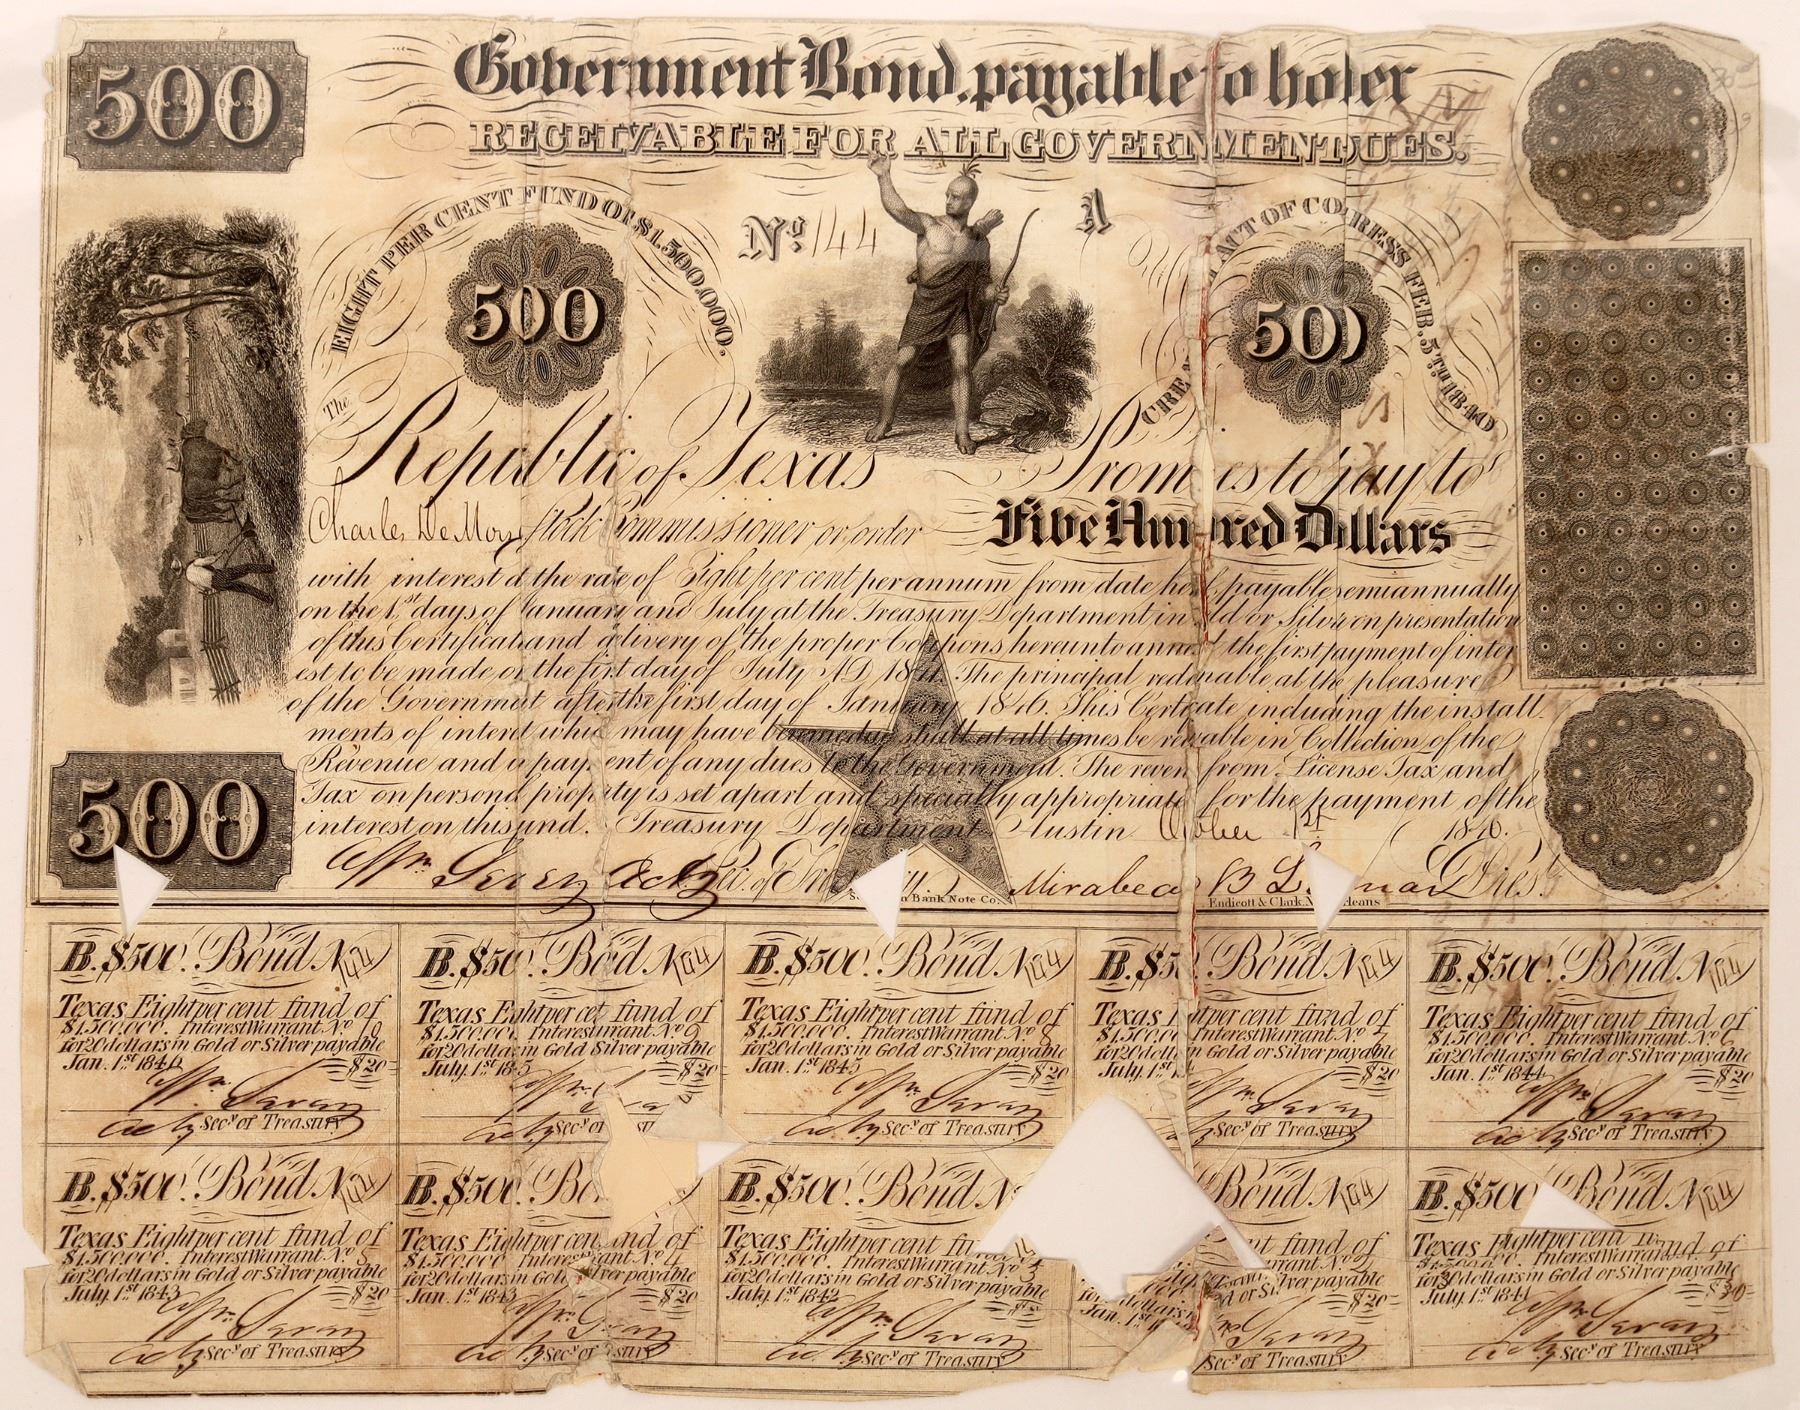 500
Government Bond, payable to ho er
RECEIVABLE FOR ALL GOVERNMENT UES.
EIGHT PER CENT FUND OF $1.500.000.
No. 144
A
CRE ACT OF CO RESS FEB. 5TH 1840
500
500
The
Republic of Texas Promi es to pay to
Charles De Mors Stock Commissioner or order Five Hun red Dollars
with interest at the rate of Eight per cent per annum from date he f payable semiannually
on the 1st days of January and July at the Treasury Department in ld or Silver on presentation
of this Certificate and delivery of the proper Coupons hereunto annex the first payment of inter
est to be made on the first day of July AD 1841. The principal redeemable at the pleasure
of the Government after the first day of January 1846. This Certificate including the install-
ments of interest which may have become due shall at all times be receivable in Collection of the
Revenue and in payment of any dues to the Government. The reven from License Tax and
Tax on personal property is set apart and specially appropriate for the payment of the
interest on this fund. Treasury Department Austin 1st 1840.
500
Acty Sec. of Mirabea B L mar Pres.
n Bank Note Co. Endicott & Clark, N leans
B. $500. Bond No 144
Texas Eight per cent fund of
$1.500.000. Interest Warrant No 10
for 20 dollars in Gold or Silver payable
Jan. 1st 1846 $20
Acty Secy of Treasury
B. $50 . Bond No 144
Texas Eight per cent fund of
$1.500.00 . Interest arrant No 9
for 20 dollars in Gold Silver payable
July. 1st 1845 $20
Acty Secy of
B. $500. Bond No 144
Texas Eight per cent fund of
$1.500.000. Interest Warrant No 8
for 20 dollars in Gold or Silver payable
Jan. 1st 1845 $20
Acty Secy of Treasury
B. $5 . Bond No 144
Texas per cent fund of
$1.500.0 . Interest Warrant No 7
for 20 doll n Gold or Silver payable
July. 1st $20
Acty Secy of Treasury
B. $500. Bond No 144
Texas Eight per cent fund of
$1.500.000. Interest Warrant No 6
for 20 dollars in Gold or Silver payable
Jan. 1st 1844 $20
Acty Secy of Treasury
B. $500. Bond No 144
Texas Eight per cent fund of
$1.500.000. Interest Warrant No 5
for 20 dollars in Gold or Silver payable
July. 1st 1843 $20
Acty Secy of Treasury
B. $500. Bo
Texas Eight per cen nd of
$1.500.000. Interest ant No 4
for 20 dollars in Gol lver payable
Jan. 1st 1843 $20
Acty Secy of Treasury
B. $500. Bond N
Texas Eight per cent fu
$1.500.000. Interest Warrant No
for 20 dollars in Gold or Silver payable
July. 1st 1842
Acty Secy of Treasury
Bond No 144
nt fund of
rrant No 2
d or Silver payable
Jan. 1st $20
Secy of Treasury
B. $500 Bond No 144
Texas Eight per cent fund of
Interest Warrant
for dollars in Gold or Silver payable
July. 1st 1841 $30
Acty Secy of Treasury